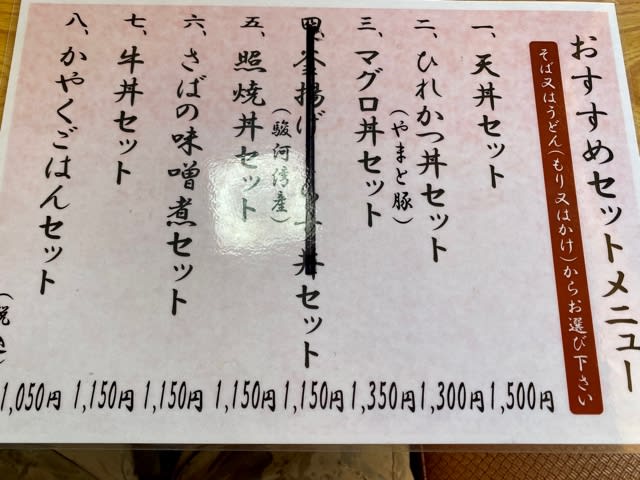 おすすめセットメニュー
そば又はうどん(もり又はかけ)からお選び下さい
一、天丼セット 1,500円
二、ひれかつ丼セット 1,300円
(やまと豚)
三、マグロ丼セット 1,350円
四、釜揚げ 丼セット 1,150円
(駿河湾産)
五、照焼丼セット 1,150円
六、さばの味噌煮セット 1,150円
七、牛丼セット 1,150円
八、かやくごはんセット 1,050円